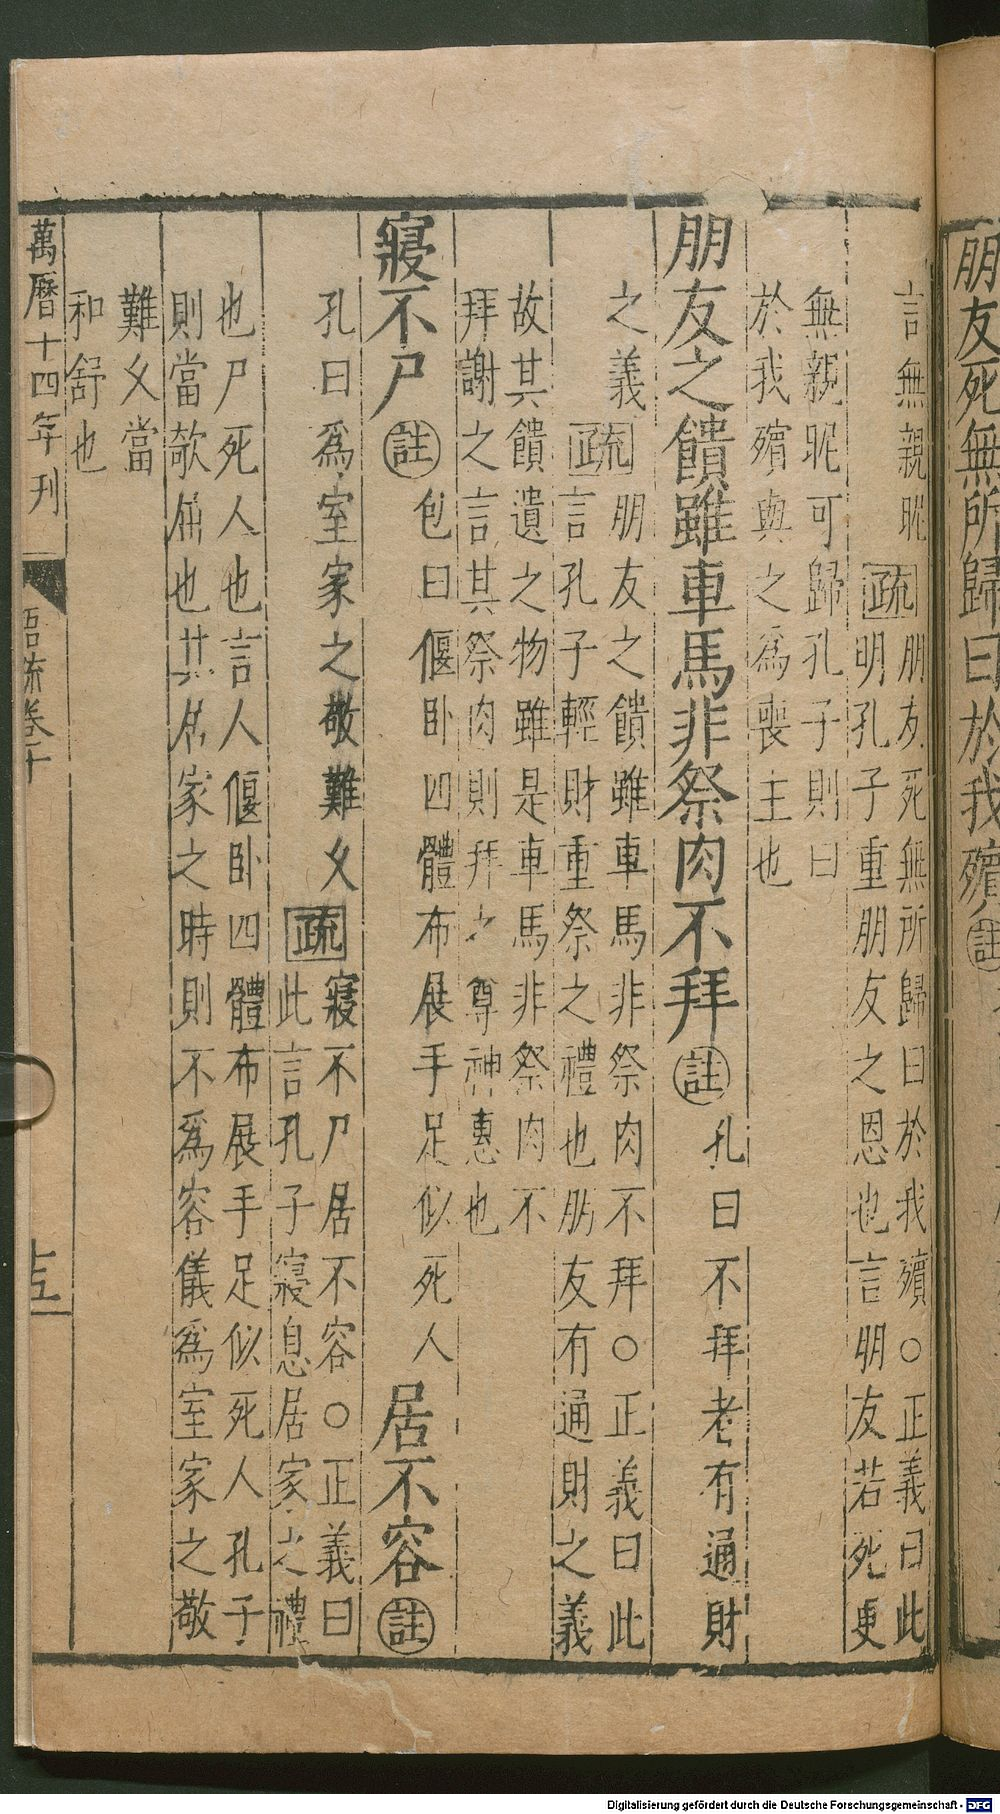 朋友死無所歸曰於我殯註
言無親昵疏朋友死無所歸曰於我殯○正義曰此
明孔子重朋友之恩也言明友若死更
無親昵可歸孔子則曰
於我殯與之爲喪主也
朋友之饋雖車馬非祭肉不拜註孔曰不拜老有通財
之義疏朋友之饋雖車馬非祭肉不拜○正義曰此
言孔子輕財重祭之禮也朋友有通財之義
故其饋遺之物雖是車馬非祭肉不
拜謝之言其祭肉則拜之尊神惠也
寢不尸註包曰偃卧四體布展手足似死人居不容註
孔曰爲室家之敬難乆疏寢不尸居不容○正義曰
此言孔子寢息居家之禮
也尸死人也言人偃卧四體布展手足似死人孔子
則當欹屈也其居家之時則不爲容儀爲室家之敬
難乆當
和舒也
萬曆十四年刊 語疏卷十 十五
Digitalisierung gefördert durch die Deutsche Forschungsgemeinschaft - DFG